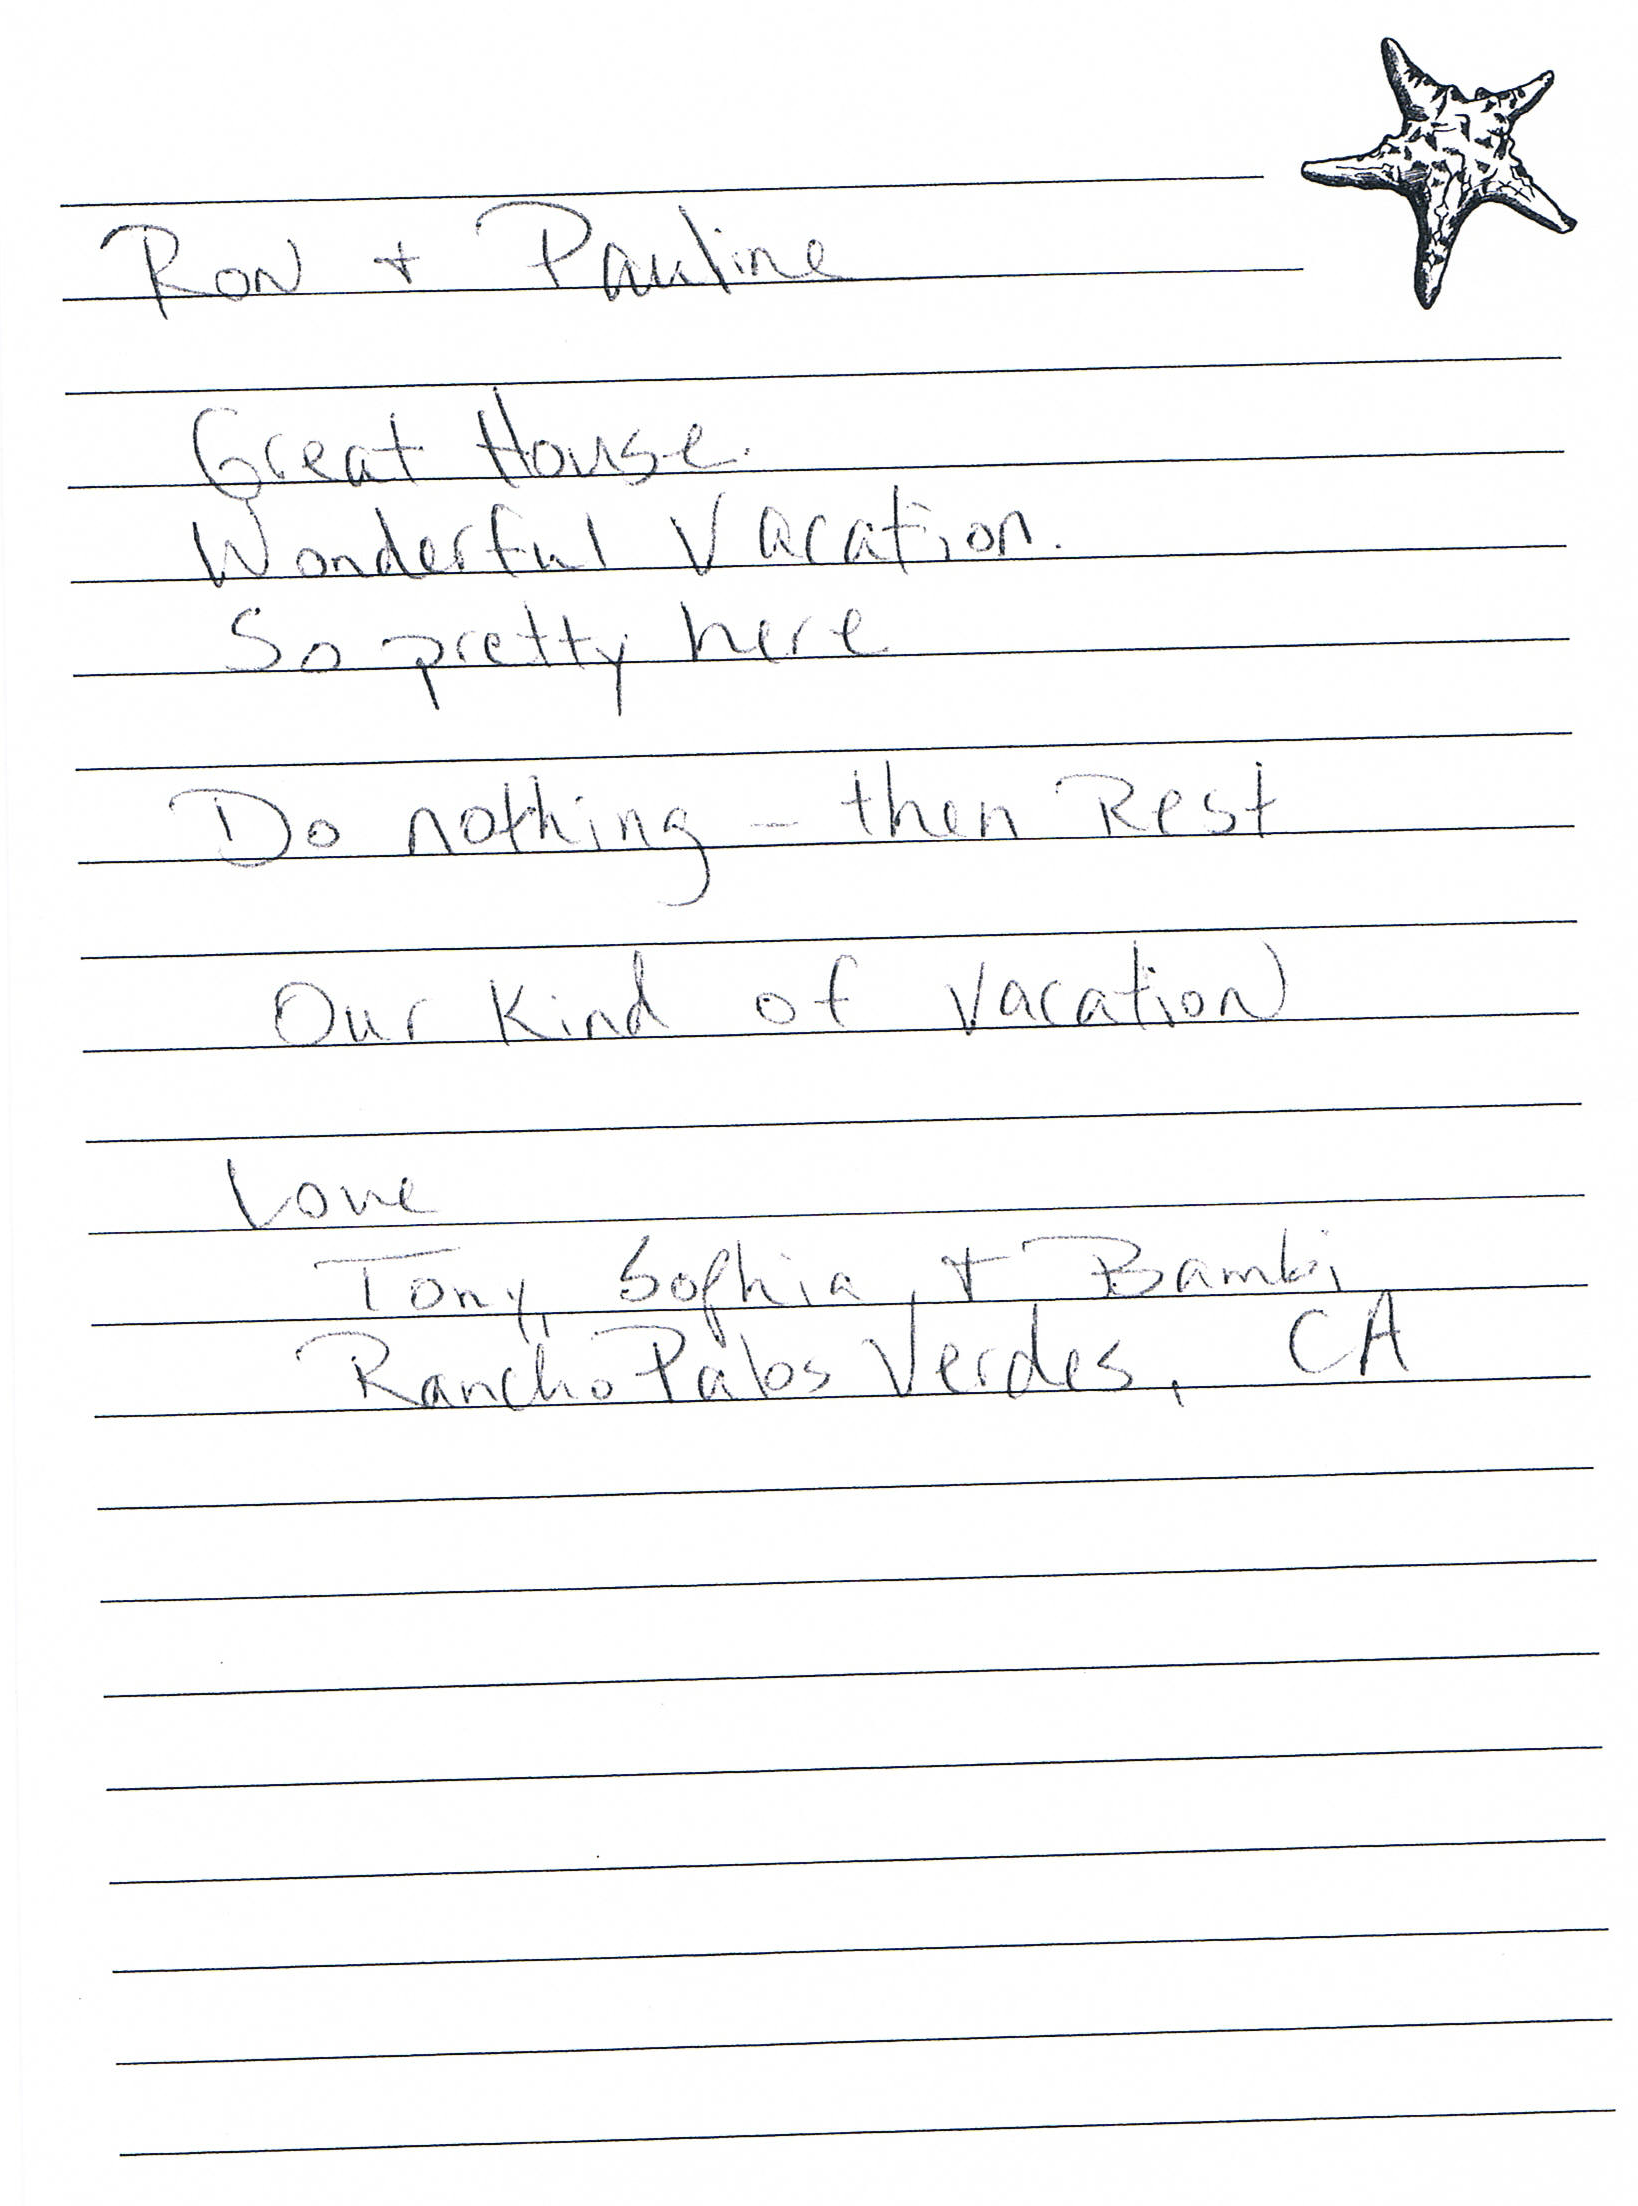 Ron + Pauline
Great House.
Wonderful Vacation.
So pretty here
Do nothing - then Rest
Our Kind of Vacation
Love
Tony, Sophia, + Bambi
Rancho Palos Verdes, CA